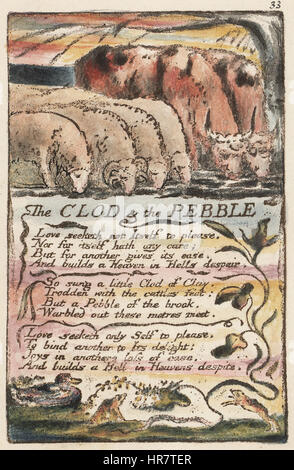 33
The CLOD & the PEBBLE
Love seeketh not Itself to please,
Nor for itself hath any care;
But for another gives its ease,
And builds a Heaven in Hells despair.
So sung a little Clod of Clay,
Trodden with the cattles feet:
But a Pebble of the brook,
Warbled out these metres meet.
Love seeketh only Self to please,
To bind another to Its delight:
Joys in anothers loss of ease,
And builds a Hell in Heavens despite.
alamy stock photo
HR7TER
www.alamy.com